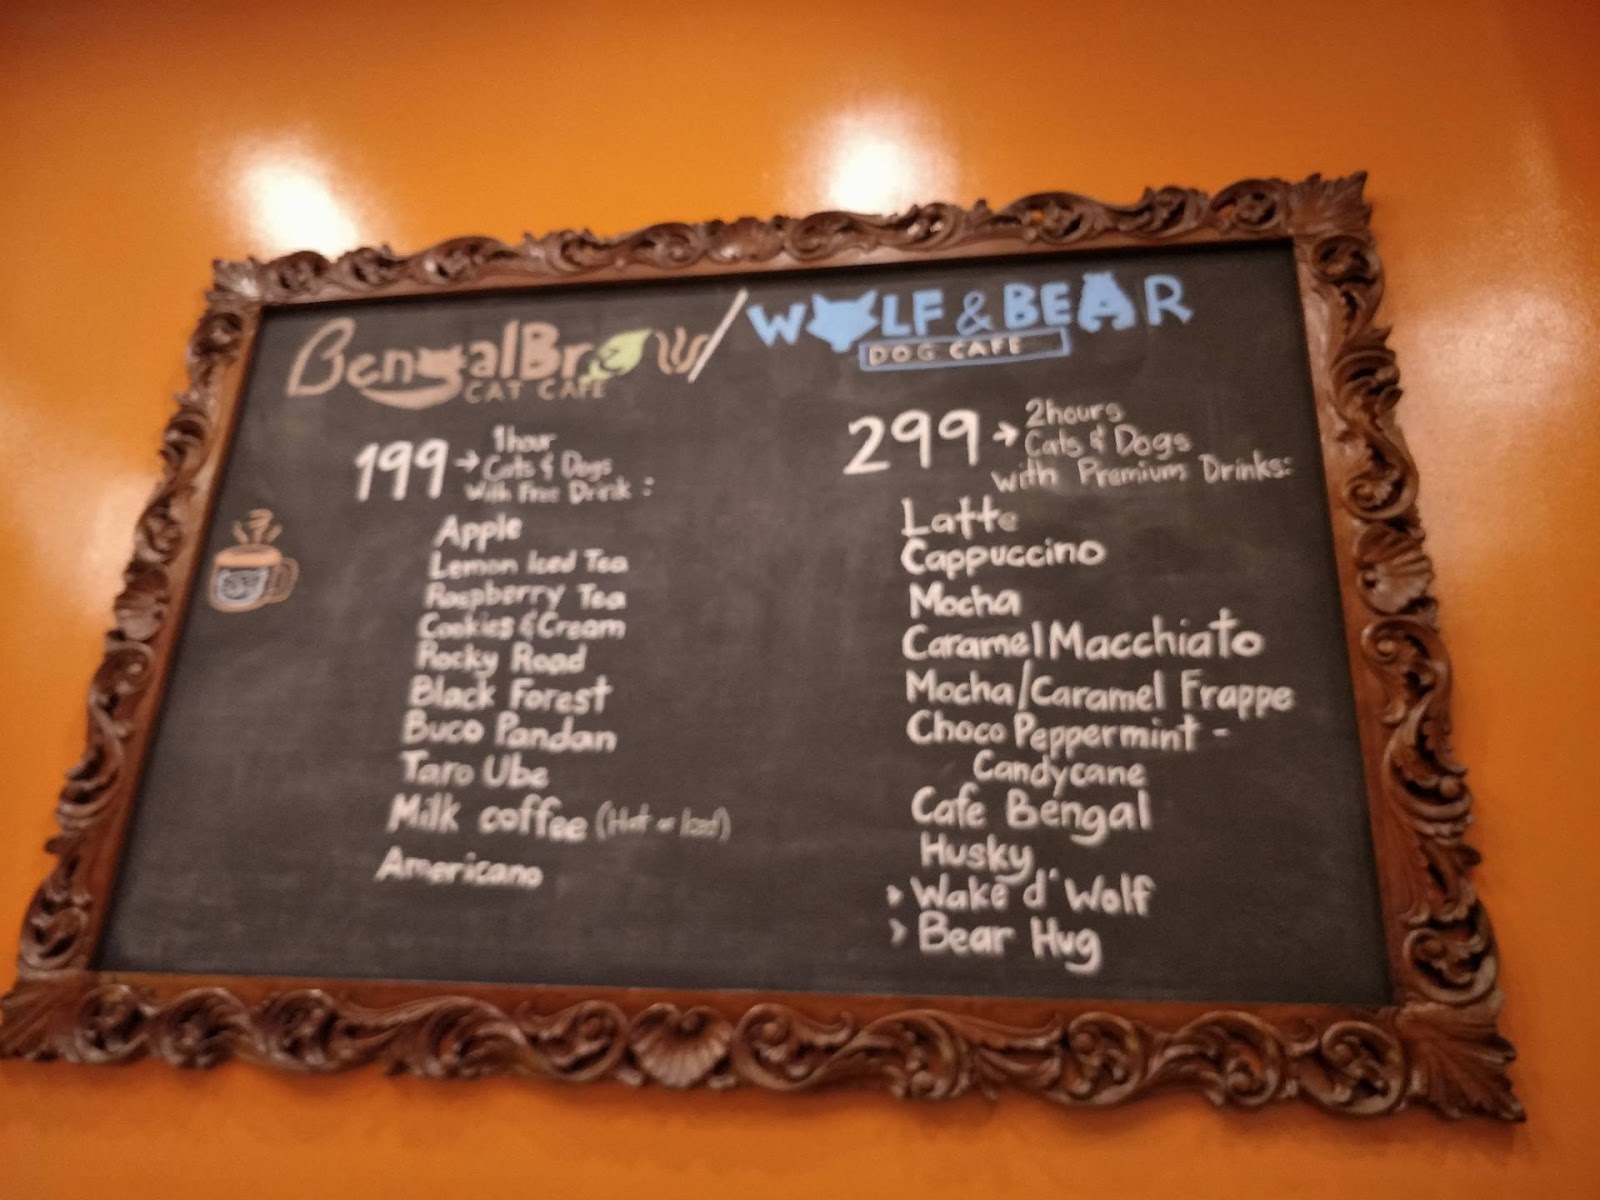 BengalBrew / WOLF & BEAR
CAT CAFE
DOG CAFE
199 → 1hour
Cats & Dogs
With Free Drink :
Apple
Lemon Iced Tea
Raspberry Tea
Cookies & Cream
Rocky Road
Black Forest
Buco Pandan
Taro Ube
Milk coffee (Hot or Iced)
Americano
299 → 2hours
Cats & Dogs
with Premium Drinks:
Latte
Cappuccino
Mocha
Caramel Macchiato
Mocha/Caramel Frappe
Choco Peppermint -
Candycane
Cafe Bengal
Husky
> Wake d' Wolf
> Bear Hug